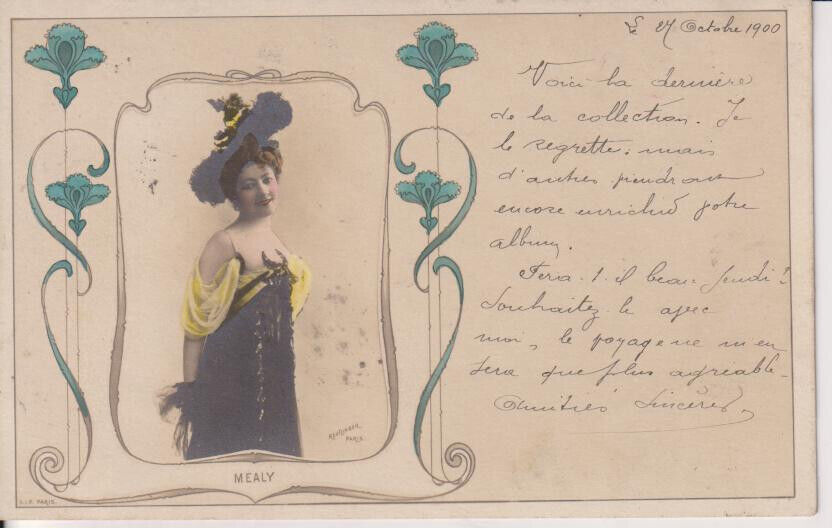 Le 27 Octobre 1900
Voici la dernière
de la collection. Je
le regrette; mais
d'autres viendront
encore enrichir votre
album.
Fera-t-il beau jeudi?
Souhaitez-le avec
moi, le voyage ne m'en
sera que plus agréable.
Amitiés sincères
REUTLINGER
PARIS
MEALY
S.I.P. PARIS.